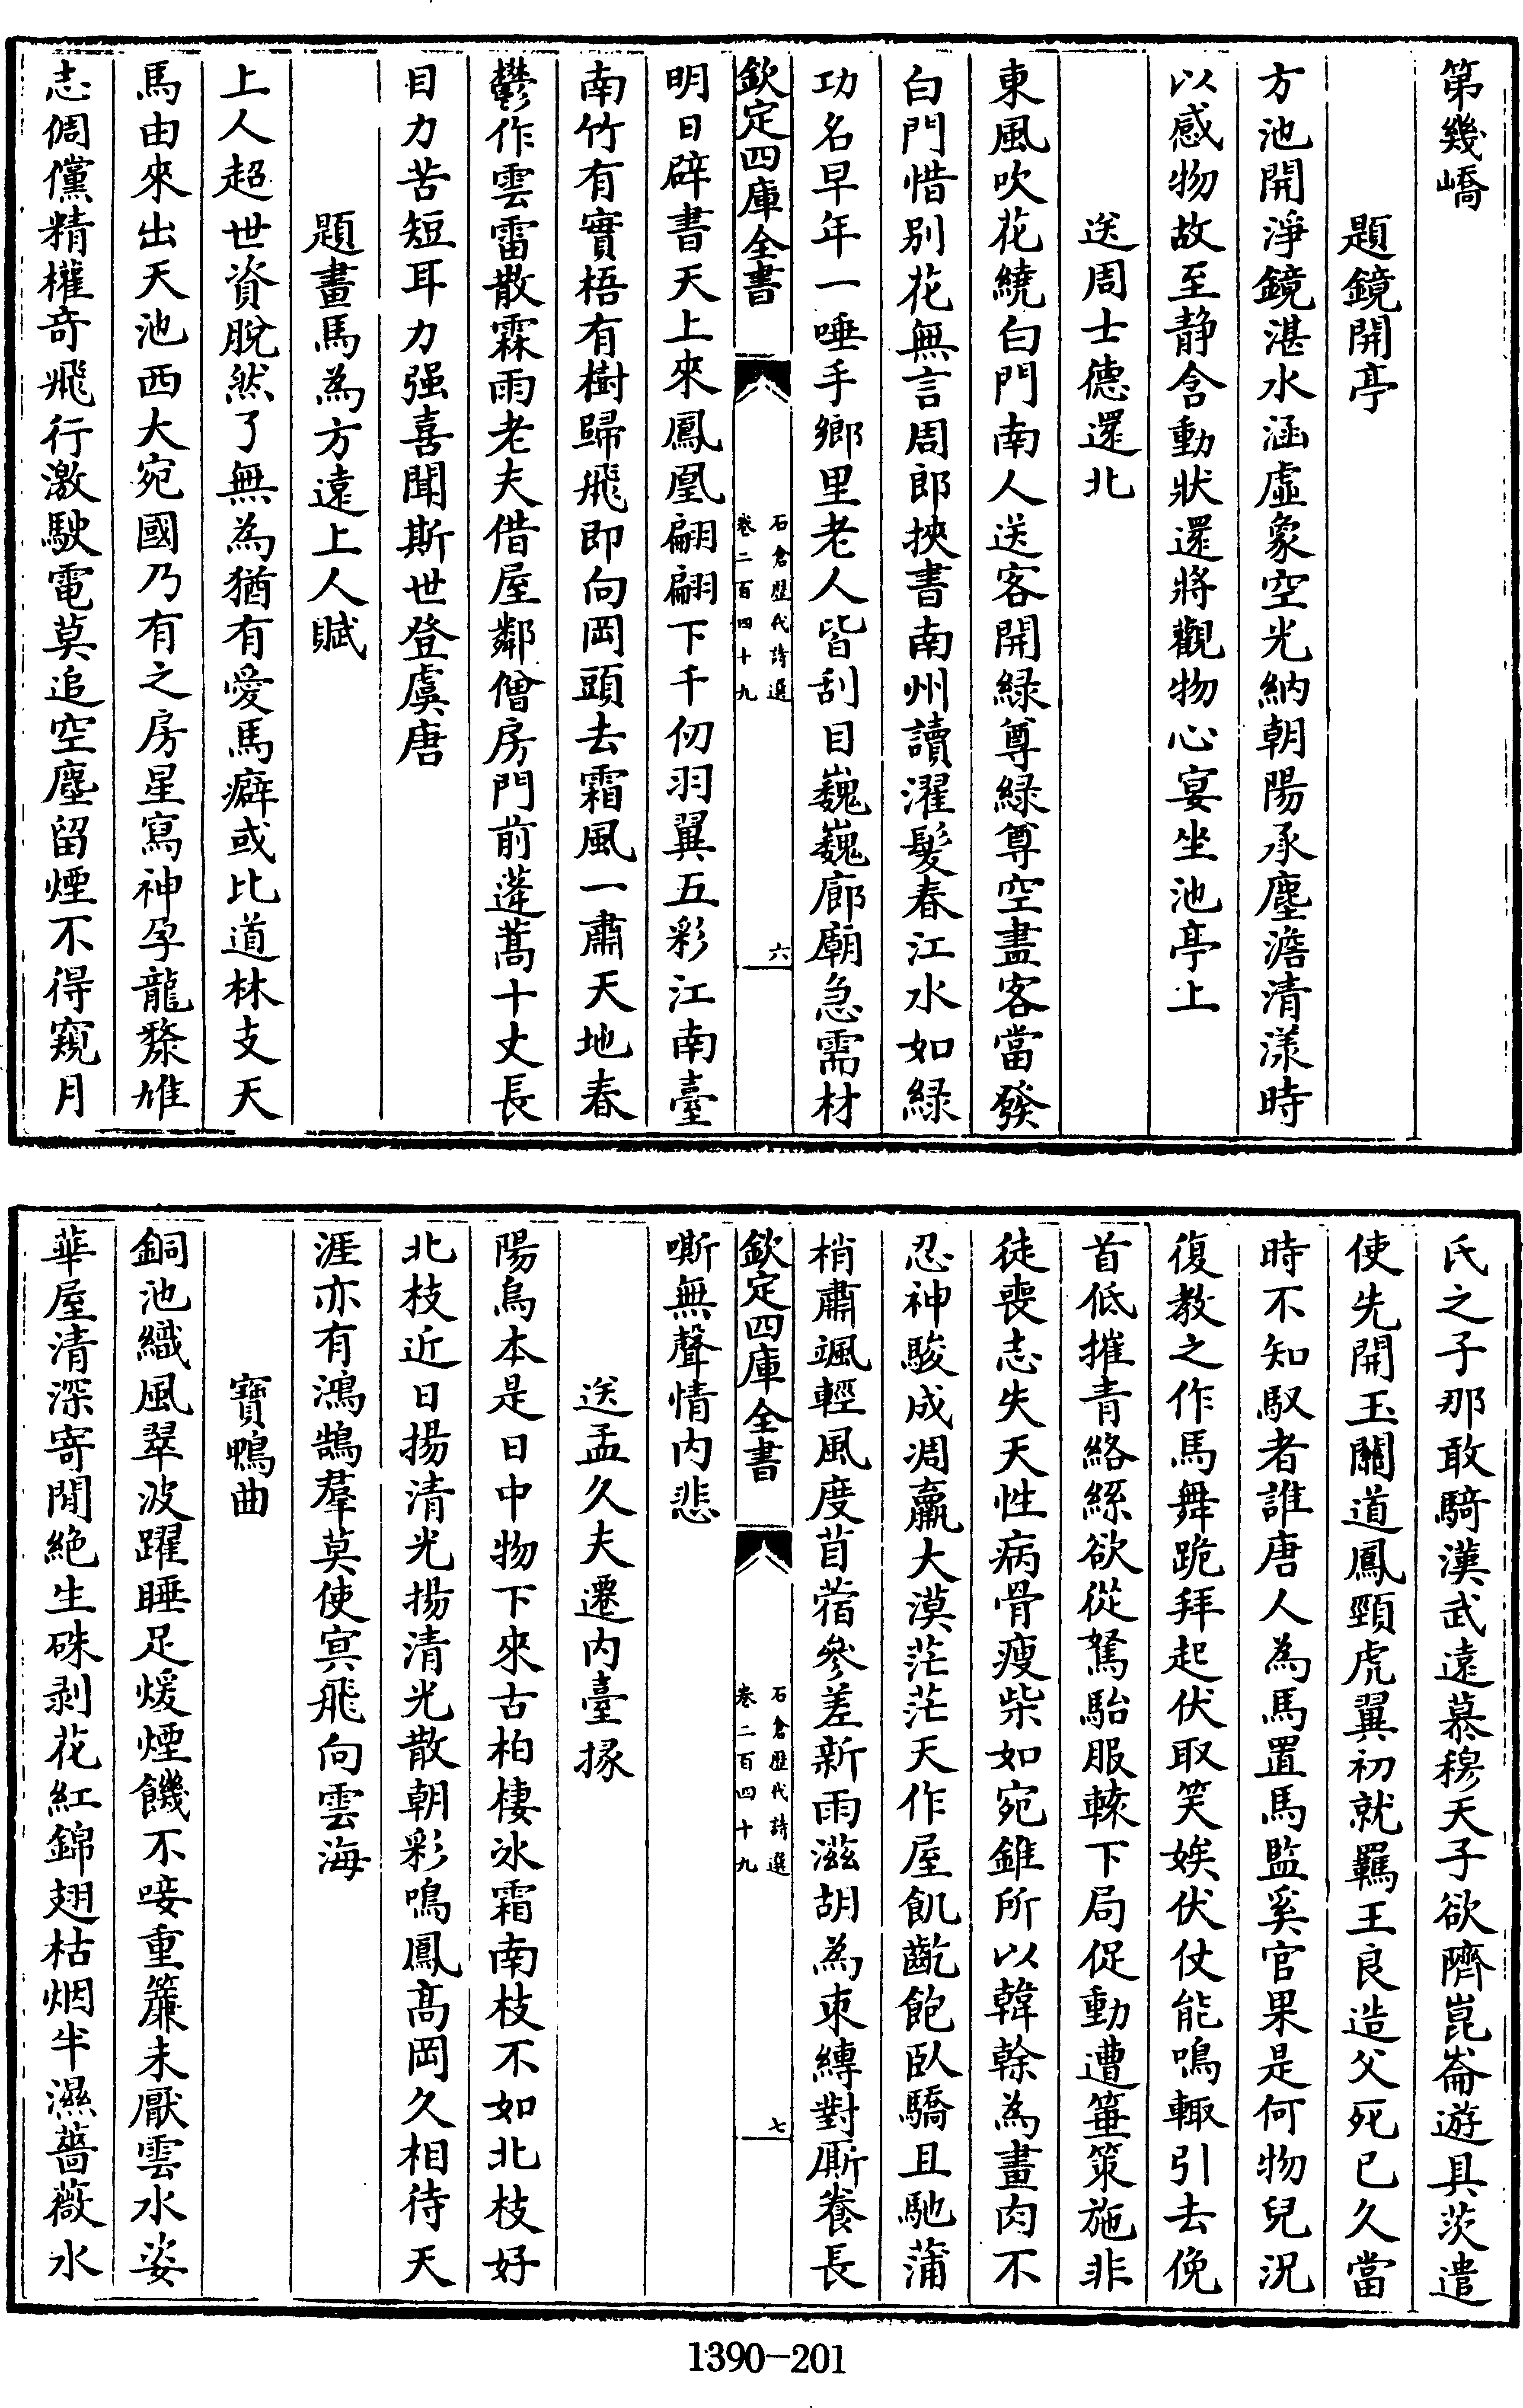 第幾嶠
題鏡開亭
方池開淨鏡湛水涵虛象空光納朝陽承塵澹清漾時
以感物故至静含動狀還將觀物心宴坐池亭上
送周士德還北
東風吹花繞白門南人送客開緑尊緑尊空盡客當發
白門惜别花無言周郎挾書南州讀濯髮春江水如緑
功名早年一唾手鄉里老人皆刮目巍巍廊廟急需材
欽定四庫全書
石倉歷代詩選
卷二百四十九
六
明日辟書天上來鳳凰翩翩下千仞羽翼五彩江南臺
南竹有實梧有樹歸飛即向岡頭去霜風一肅天地春
鬱作雲雷散霖雨老夫借屋鄰僧房門前蓬蒿十丈長
目力苦短耳力强喜聞斯世登虞唐
題畫馬為方遠上人賦
上人超世資脫然了無為猶有愛馬癖或比道林支天
馬由來出天池西大宛國乃有之房星寫神孕龍漦雄
志倜儻精權奇飛行激駛電莫追空塵留煙不得窺月
氏之子那敢騎漢武遠慕穆天子欲隮崑崙遊具茨遣
使先開玉關道鳳頸虎翼初就羈王良造父死已久當
時不知馭者誰唐人為馬置馬監奚官果是何物兒況
復教之作馬舞跪拜起伏取笑娭伏仗能鳴輙引去俛
首低摧青絡絲欲從駑駘服轅下局促動遭箠策施非
徒喪志失天性病骨瘦柴如宛錐所以韓幹為畫肉不
忍神駿成凋羸大漠茫茫天作屋飢齕飽臥驕且馳蒲
梢肅颯輕風度苜蓿參差新雨滋胡為束縛對厮養長
欽定四庫全書
石倉歷代詩選
卷二百四十九
七
嘶無聲情内悲
送孟久夫遷内臺掾
陽烏本是日中物下來古柏棲冰霜南枝不如北枝好
北枝近日揚清光揚清光散朝彩鳴鳳髙岡久相待天
涯亦有鴻鵠羣莫使㝠飛向雲海
寶鴨曲
銅池織風翠波躍睡足煖煙饑不唼重簾未厭雲水姿
華屋清深寄閒絶生硃剥花紅錦翅枯烟半濕薔薇水
1390-201